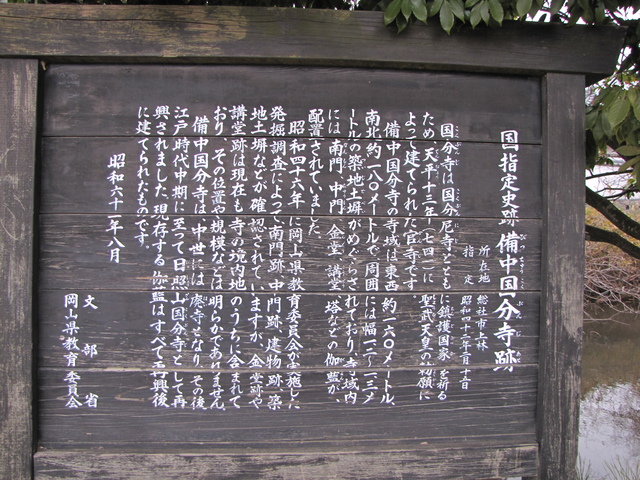 国指定史跡 備中国分寺跡
所在地 総社市上林
指定 昭和四十三年二月十五日
国分寺は国分尼寺とともに鎮護国家を祈る
ため、天平十三年(七四一)に聖武天皇の勅願に
よって建てられた官寺です。
備中国分寺の寺域は東西約一六〇メートル、
南北約一八〇メートルで、周囲には幅一.一三メ
ートルの築地土塀がめぐらされており、寺域内
には、南門、中門、金堂、講堂、塔などの伽藍が、
配置されていました。
昭和四十六年に岡山県教育委員会が実施した
発掘調査によって南門跡、中門跡、建物跡、築
地土塀などが確認されていますが、金堂跡や
講堂跡は現在も寺の境内地のうちに含まれて
おり、その位置や規模などは明らかでありません。
備中国分寺は、中世には廃寺となり、その後
江戸時代中期に至って日照山国分寺として再
興されました。現存する伽藍はすべて再興後
に建てられたものです。
昭和六十一年八月
文部省
岡山県教育委員会